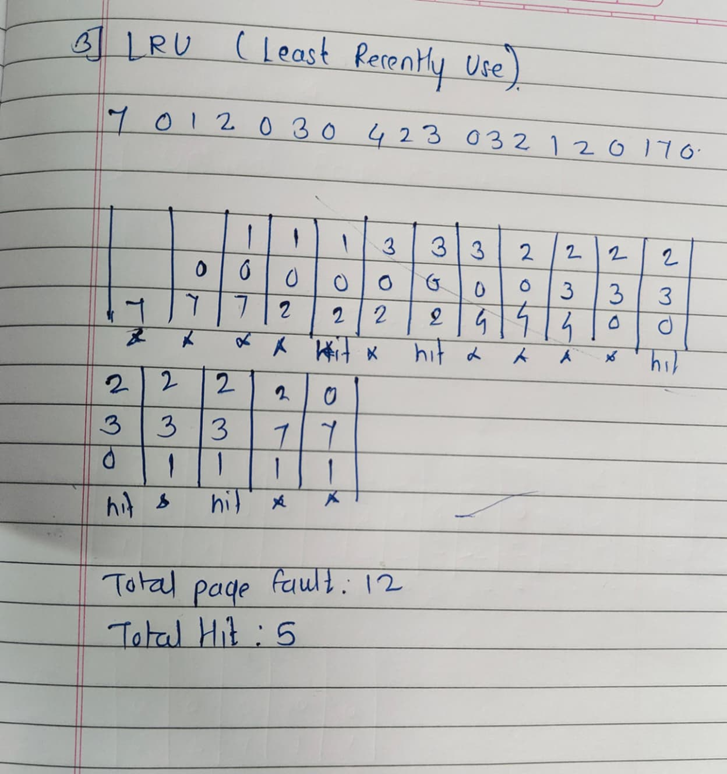 3] LRU (Least Recently Use).
7 0 1 2 0 3 0 4 2 3 0 3 2 1 2 0 1 7 0.
1 1 1 3 3 3 2 2 2 2
0 0 0 0 0 0 0 0 3 3 3
7 7 7 2 2 2 2 4 4 4 0 0
x x x x Hit x hit x x x x hit
2 2 2 2 0
3 3 3 7 7
0 1 1 1 1
hit x hit x x
Total page fault : 12
Total Hit : 5